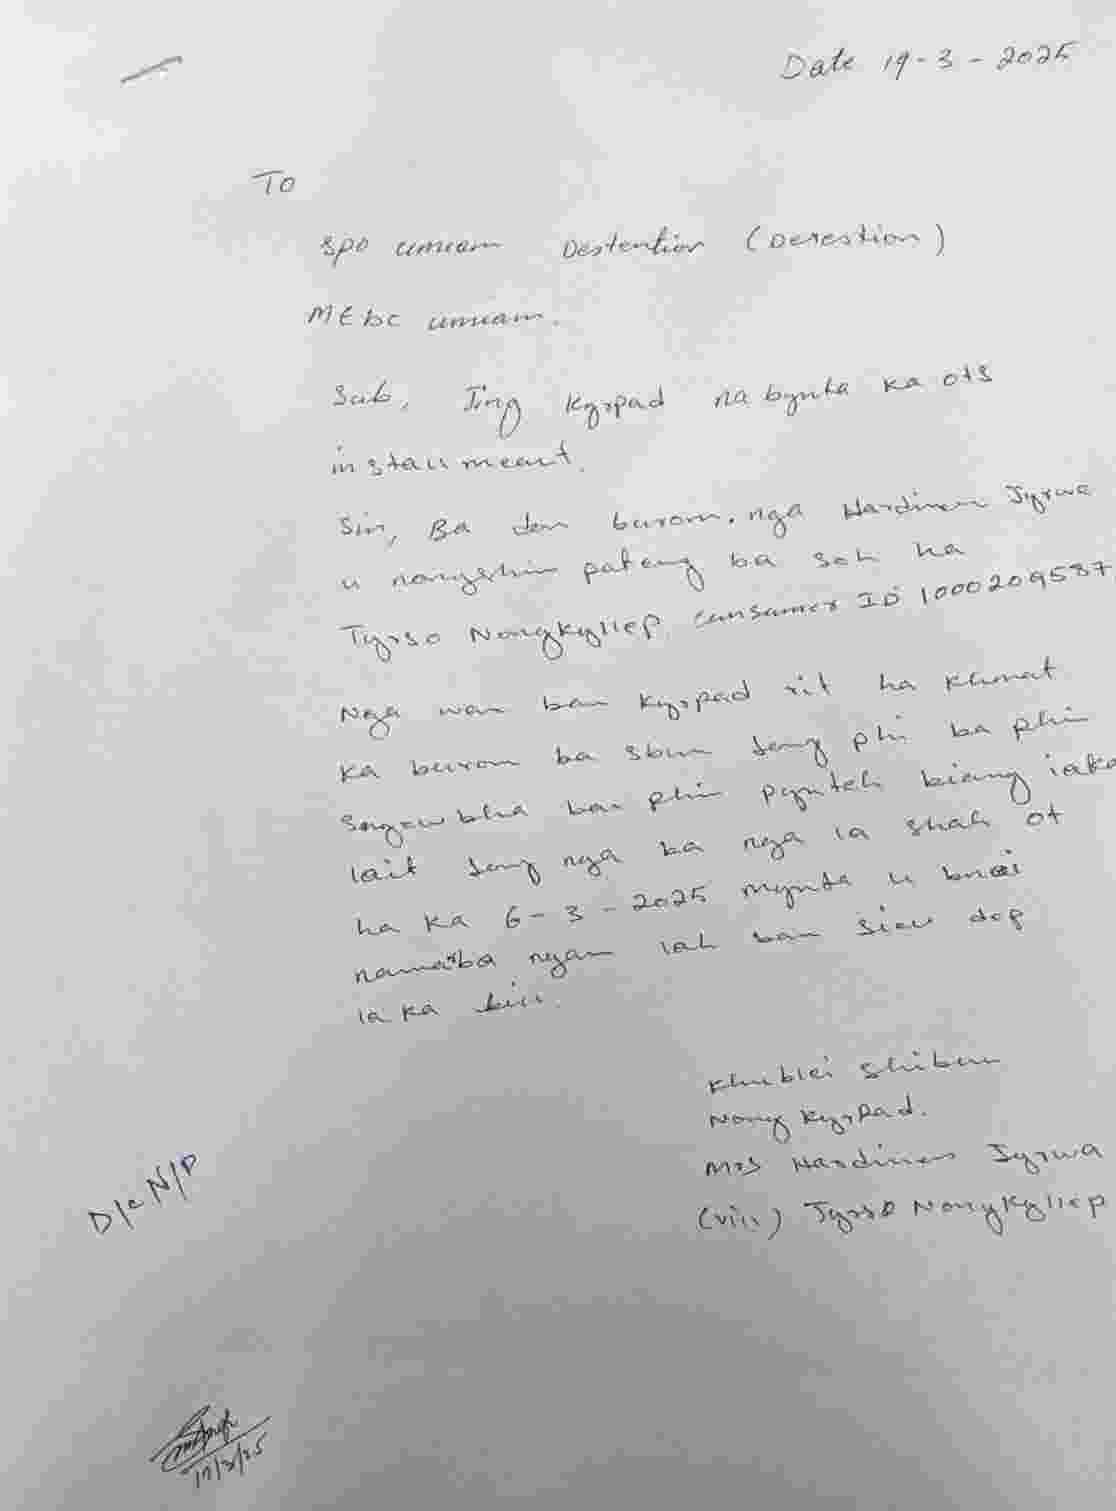 Date 19-3-2025
To
SPO umiam Destention (Derestion)
MEbc umiam.
Sub, Jing Kyrpad na bynta ka ots
installmeant.
Sir, Ba don burom. nga Hardinen Jyrwa
u nongshim pateng ba soh ha
Tyrso Nongkyllep, cansamer ID 1000209587
Nga wan ban kyrpad rit ha khmat
ka burom ba sbun jong phi ba phin
sngewbha ban phin pynteh biang iaka
lait jong nga ba nga la shah ot
ha ka 6-3-2025 mynta u bnai
namarba ngam lah ban siew dep
ia ka bill.
Khublei shibun
Nong kyrpad.
Mrs Hardinen Jyrwa
(vill) Tyrso Nongkyllep
D/c N/P